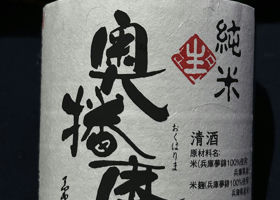 純米
生
奥播磨
おくはりま
清酒
原材料名:
米(兵庫夢錦100%使用)
米麹(兵庫夢錦100%使用)